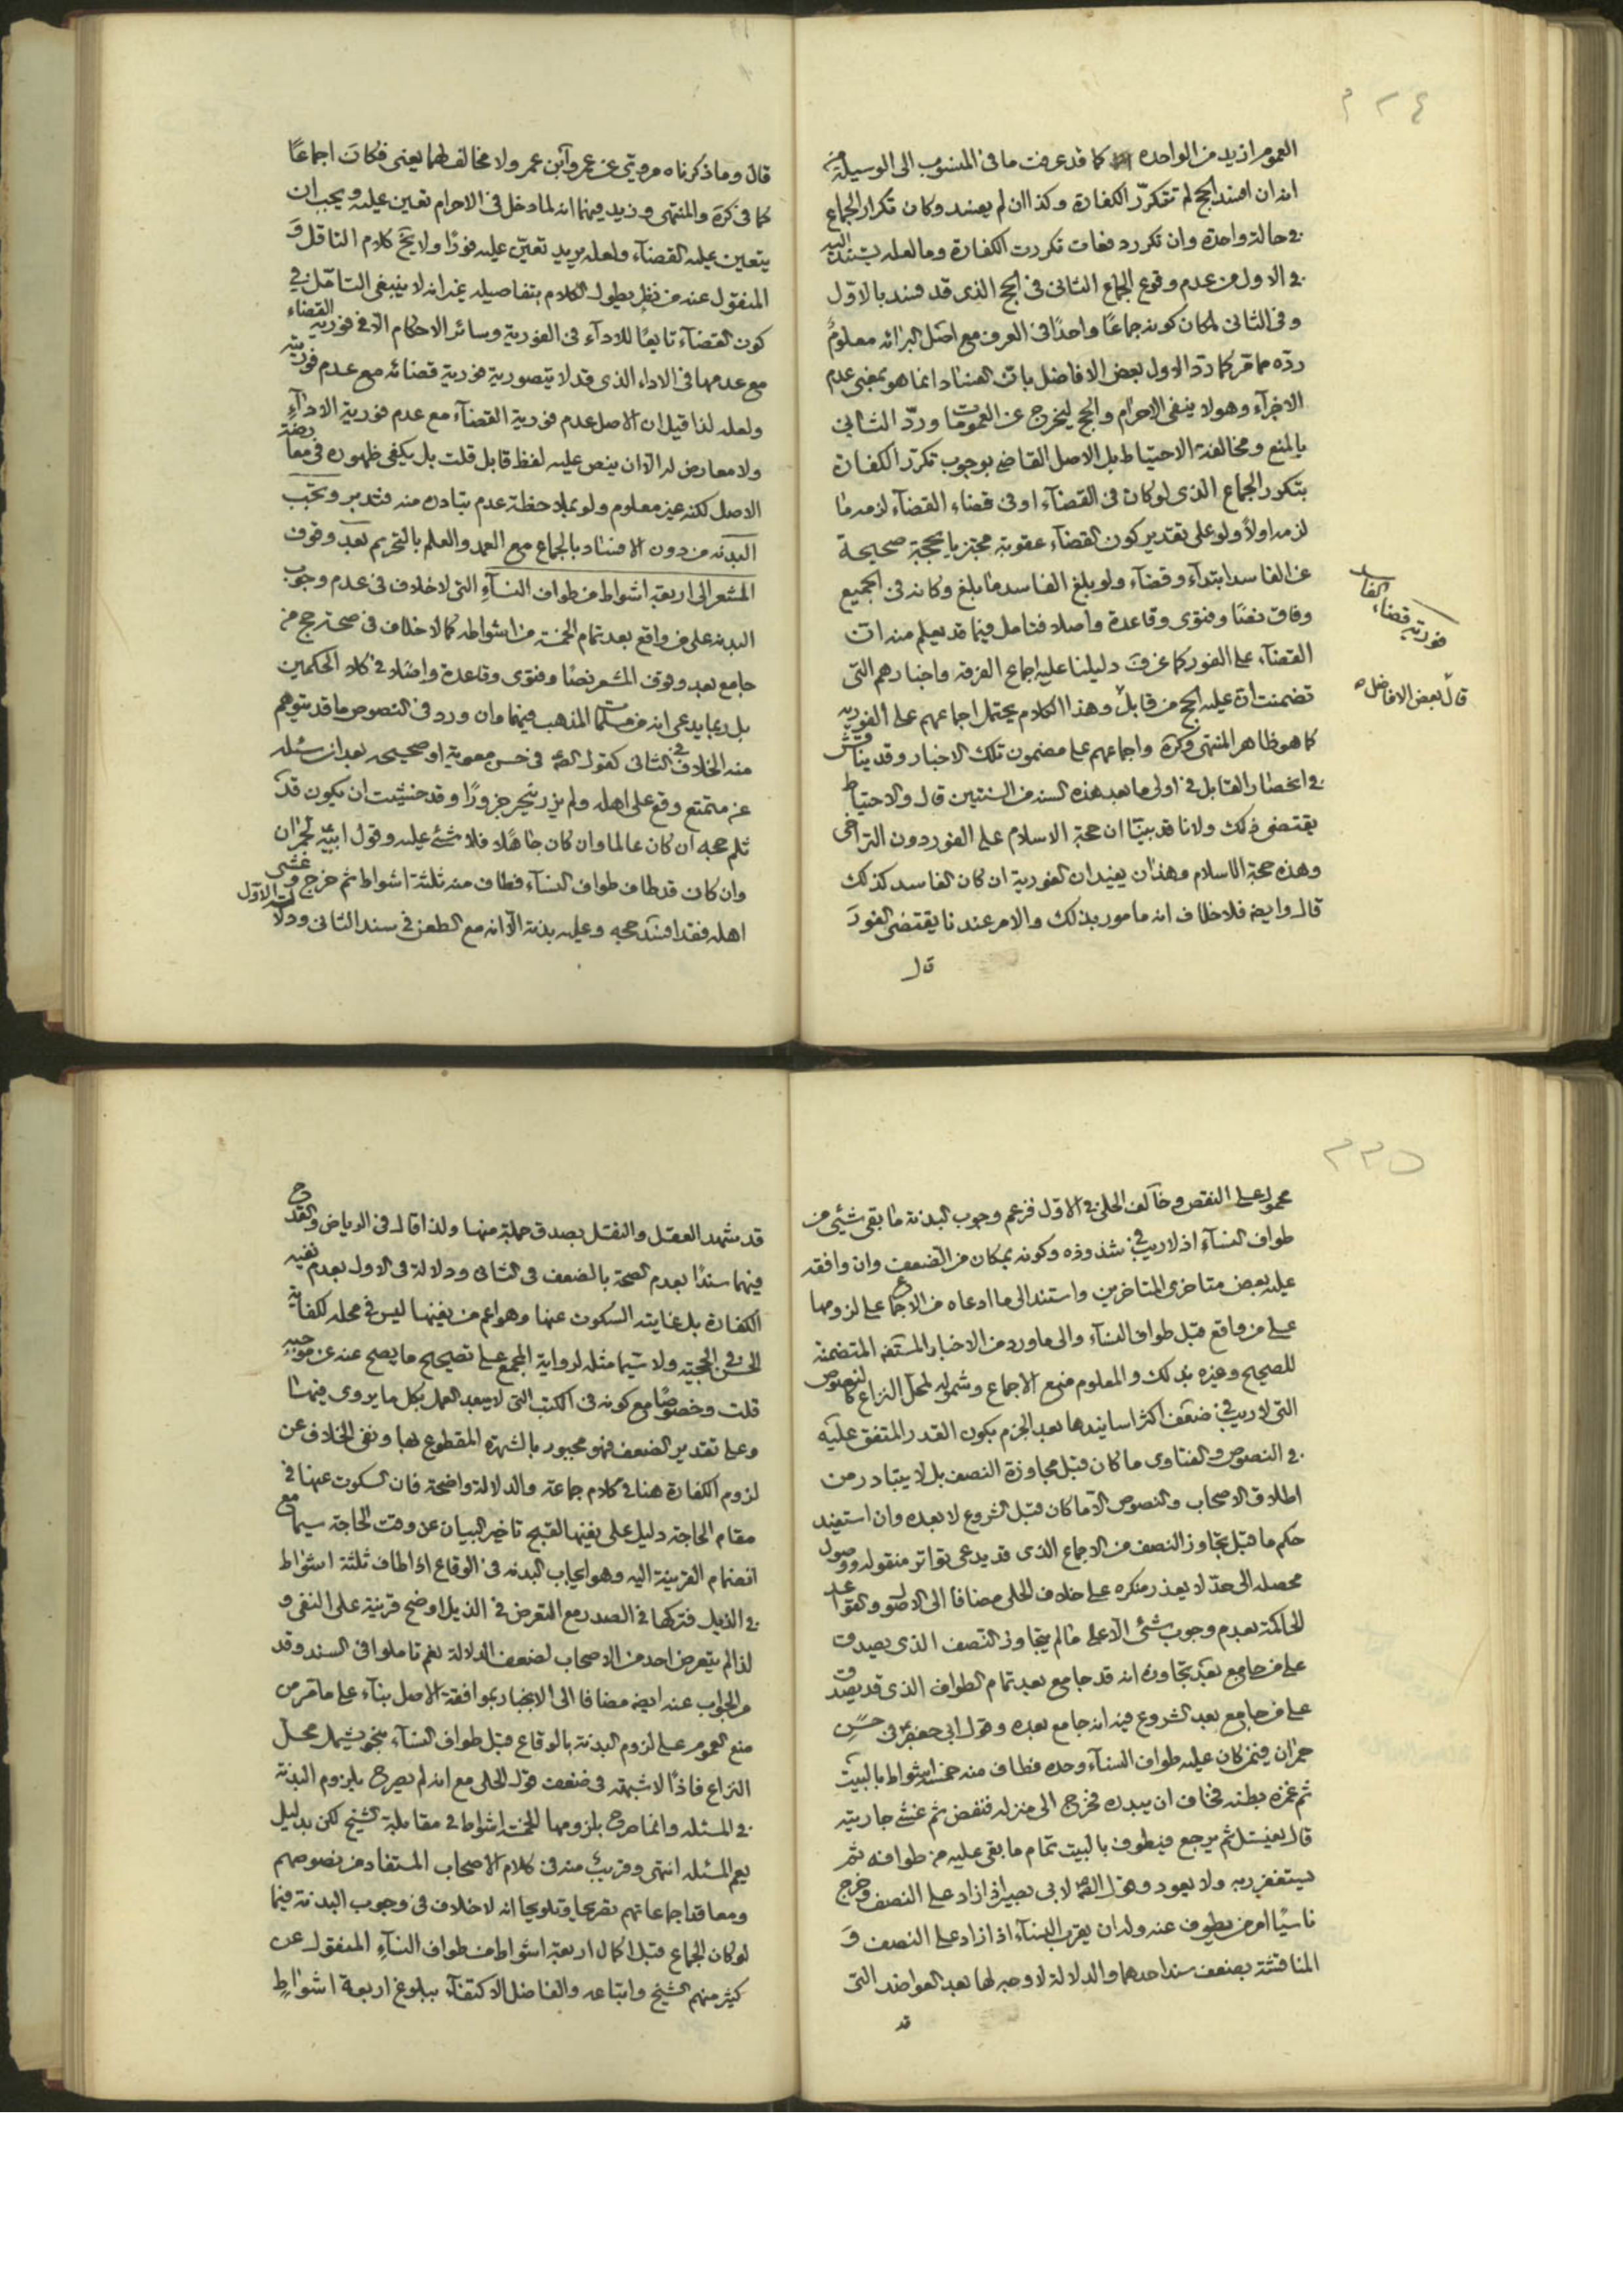 ٢٢٤
العموم ازيد من الواحدة كما قد عرفت ما في المنسوب الى الوسيلة من
انه ان افسد الحج لم تتكرّر الكفارة وكذا ان لم يفسد وكان تكرار الجماع
في حالة واحدة وان تكرر دفعات تكررت الكفارة وما لعله يستند اليه
في الاول من عدم وقوع الجماع الثاني في الحج الذي قد فسد بالاوّل
وفي الثاني لمكان كونه جماعًا واحدًا في العرف مع اصل البرائه معلومٌ
ردّه مما مرّ كما ردّ الاول بعض الافاضل بان الفساد انما هو بمعنى عدم
الاجزآء وهو لا ينفي الاحرام والحج ليخرج عن العمومات وردّ الثاني
بالمنع ومخالفة الاحتياط بل الاصل القاضي بوجوب تكرّر الكفارة
بتكرر الجماع الذي لو كان في القضآء او في قضاء القضآء لزمه ما
لزمه اولاً ولو على تقدير كون القضآء عقوبة مجتزيا بحجة صحيحة
عن الفاسد ابتدآء وقضآء ولو بلغ الفاسد ما بلغ وكانه في الجميع
وفاق نصًا وفتوى وقاعدة واصلا فتامل فيما قد يعلم منه ان
القضآء على الفور كما عن ف دليلنا عليه اجماع الفرقه واخبارهم التي
تضمنت ان عليه الحج من قابل وهذا الكلام يحتمل اجماعهم على الفوريه
كما هو ظاهر المنتهى وكرة واجماعهم على مضمون تلك الاخبار وقد يناقش
في انحصار القابل في اولى ما بعد هذه السنه من السنتين قال والاحتياط
يقتضي ذلك ولانا قد بينّا ان حجة الاسلام على الفور دون التراخي
وهذه حجة الاسلام وهذان يفيدان الفورية ان كان الفاسد كذلك
قال وايضه فلا خلاف انه مامور بذلك والامر عندنا يقتضي الفورَ
قال
فورية قضاء الفاسد
قال بعض الافاضل
قال وما ذكرناه مروىّ عن عمر وآبن عمر ولا مخالف لهما يعنى فكان اجماعًا
كما في كرة والمنتهى وزيد فيهما انه لما دخل في الاحرام تعين عليه ويجب ان
يتعين عليه القضآء ولعله يريد تعيّن عليه فورًا ولا يخ كلام الناقل وَ
المنقول عنه من نظر يطول الكلام بتفاصيله غير انه لا ينبغي التامّل في
كون القضآء تابعًا للادآء في الفورية وسائر الاحكام الّا في فورية القضاء
مع عدمها في الاداء الذي قد لا يتصور به فورية قضائه مع عدم فوريته
ولعله لذا قيل ان الاصل عدم فورية القضآء مع عدم فورية الادآءِ
ولا معارض له الّا ان ينص عليه لفظ قابل قلت بل يكفى ظهوره في معارضة
الاصل لكنه غير معلوم ولو بملاحظة عدم تبادره منه فتدبر وتجب
البدنه من دون الافساد بالجماع مع العمد والعلم بالتحريم بعد وقوف
المشعر الى اربعة اشواط من طواف النسآءِ التي لا خلاف في عدم وجوب
البدنه على من واقع بعد تمام الخمسة من اشواطه كما لا خلاف في صحة حج من
جامع بعد وقوف المشعر نصًا وفتوى وقاعدة واصلا في كلا الحكمين
بل ربما يدعى انه من مسلمات المذهب فيهما وان ورد في النصوص ما قد يتوهم
منه الخلاف في الثاني كقول الصّ في حسن معوية او صحيحه بعد ان سئله
عن متمتع وقع على اهله ولم يزر ينحر جزورًا وقد خشيت ان يكون قد
ثلم حجه ان كان عالما وان كان جاهلا فلا شئ عليه وقول ابيه لحمران
وان كان قد طاف طواف النسآء فطاف منه ثلثة اشواط ثم خرج فغشى
اهله فقد افسد حجه وعليه بدنة الّا انه مع الطعن في سند الثاني ودلالة الاوّل
٢٢٥
محمول على النقص وخالف الحلى في الاوّل فزعم وجوب البدنة ما بقى شيئى من
طواف النسآءِ اذ لا ريب في شذوذه وكونه بمكان من الضعف وان وافقه
عليه بعض متاخرى المتاخرين واستند الى ما ادعاه من الاجماع على لزومها
على من واقع قبل طواف النسآء والى ما ورد من الاخبار المستفضه المتضمنة
للصحيح وغيره بذلك والمعلوم منع الاجماع وشموله لمحل النزاع كالنصوص
التي لا ريب في ضعف اكثر اسانيدها بعد الجزم بكون القدر المتفق عليه
في النصوص والفتاوى ما كان قبل مجاوزة النصف بل لا يتبادر من
اطلاق الاصحاب والنصوص الّا ما كان قبل الشروع لا بعده وان استفيد
حكم ما قبل تجاوز النصف من الاجماع الذي قد يدعى تواتر منقوله ووصول
محصله الى حدّ لا يعذر منكره على خلاف الحلى مضافا الى الاصول والقواعد
الحاكمة بعدم وجوب شئى الّا على ما لم يتجاوز النّصف الذي يصدق
على من جامع بعد تجاوزه انه قد جامع بعد تمام الطواف الذي قد يصدق
على من جامع بعد الشروع فيه انه جامع بعده وقول ابي جعفر في حسن
حمران فيمن كان عليه طواف النسآء وحده فطاف منه خمسة اشواط بالبيت
ثم غمزه بطنه فخاف ان يبدره فخرج الى منزله فنفض ثم غشى جاريته
قال يغتسل ثم يرجع فيطوف بالبيت تمام ما بقى عليه من طوافه ثم
يستغفر ربه ولا يعود وقول الصّ لابي بصير اذا زاد على النصف وخرج
ناسيًا امر من يطوف عنه وله ان يقرب النسآء اذا زاد على النصف وَ
المناقشة بضعف سند احدهما والدلالة لا وجه لها بعد العواضد التي
قد
قد شهد العقل والنقل بصدق جملة منها ولذا قال في الرياض والقدح
فيهما سندًا بعدم الصحة بالضعف في الثاني ودلالة في الاول بعدم نفيه
الكفارة بل غايته السكوت عنها وهو اعم من نفيها ليس في محله لكفاية
الحسن في الحجية ولا سيما مثله لرواية المجمع على تصحيح ما يصح عنه عن موجبه
قلت وخصوصًا مع كونه في الكتب التي لا يبعد العمل بكل ما يروى فيها
وعلى تقدير الضعف فهو مجبور بالشهرة المقطوع بها ونفى الخلاف عن
لزوم الكفارة هنا في كلام جماعة والدلالة واضحة فان السكوت عنها في
مقام الحاجة دليل على نفيها لقبح تاخير البيان عن وقت الحاجة سيما مع
انضمام القرينة اليه وهو ايجاب البدنه في الوقاع اذا طاف ثلثة اشواط
في الذيل فتركها في الصدر مع التعرض في الذيل اوضح قرينة على النفى و
لذا لم يتعرض احد من الاصحاب لضعف الدلالة نعم تاملوا في السند وقد
مر الجواب عنه ايضه مضافا الى الانجبار بموافقة الاصل بنآء على ما مر من
منع العموم على لزوم البدنة بالوقاع قبل طواف النسآء بنحو يشمل محل
النزاع فاذًا لا شبهة في ضعف قول الحلى مع انه لم يصرح بلزوم البدنة
في المسئله وانما صرح بلزومها للخمسة اشواط في مقابلة الشيخ لكن بدليل
يعم المسئله انتهى وقريبٌ منه في كلام الاصحاب المستفاد من نصوصهم
ومعاقد اجماعاتهم تصريحا وتلويحا انه لا خلاف في وجوب البدنة فيما
لو كان الجماع قبل اكمال اربعة اشواط من طواف النسآءِ المنقول عن
كثير منهم الشيخ واتباعه والفاضل الاكتفآء ببلوغ اربعة اشواطٍ